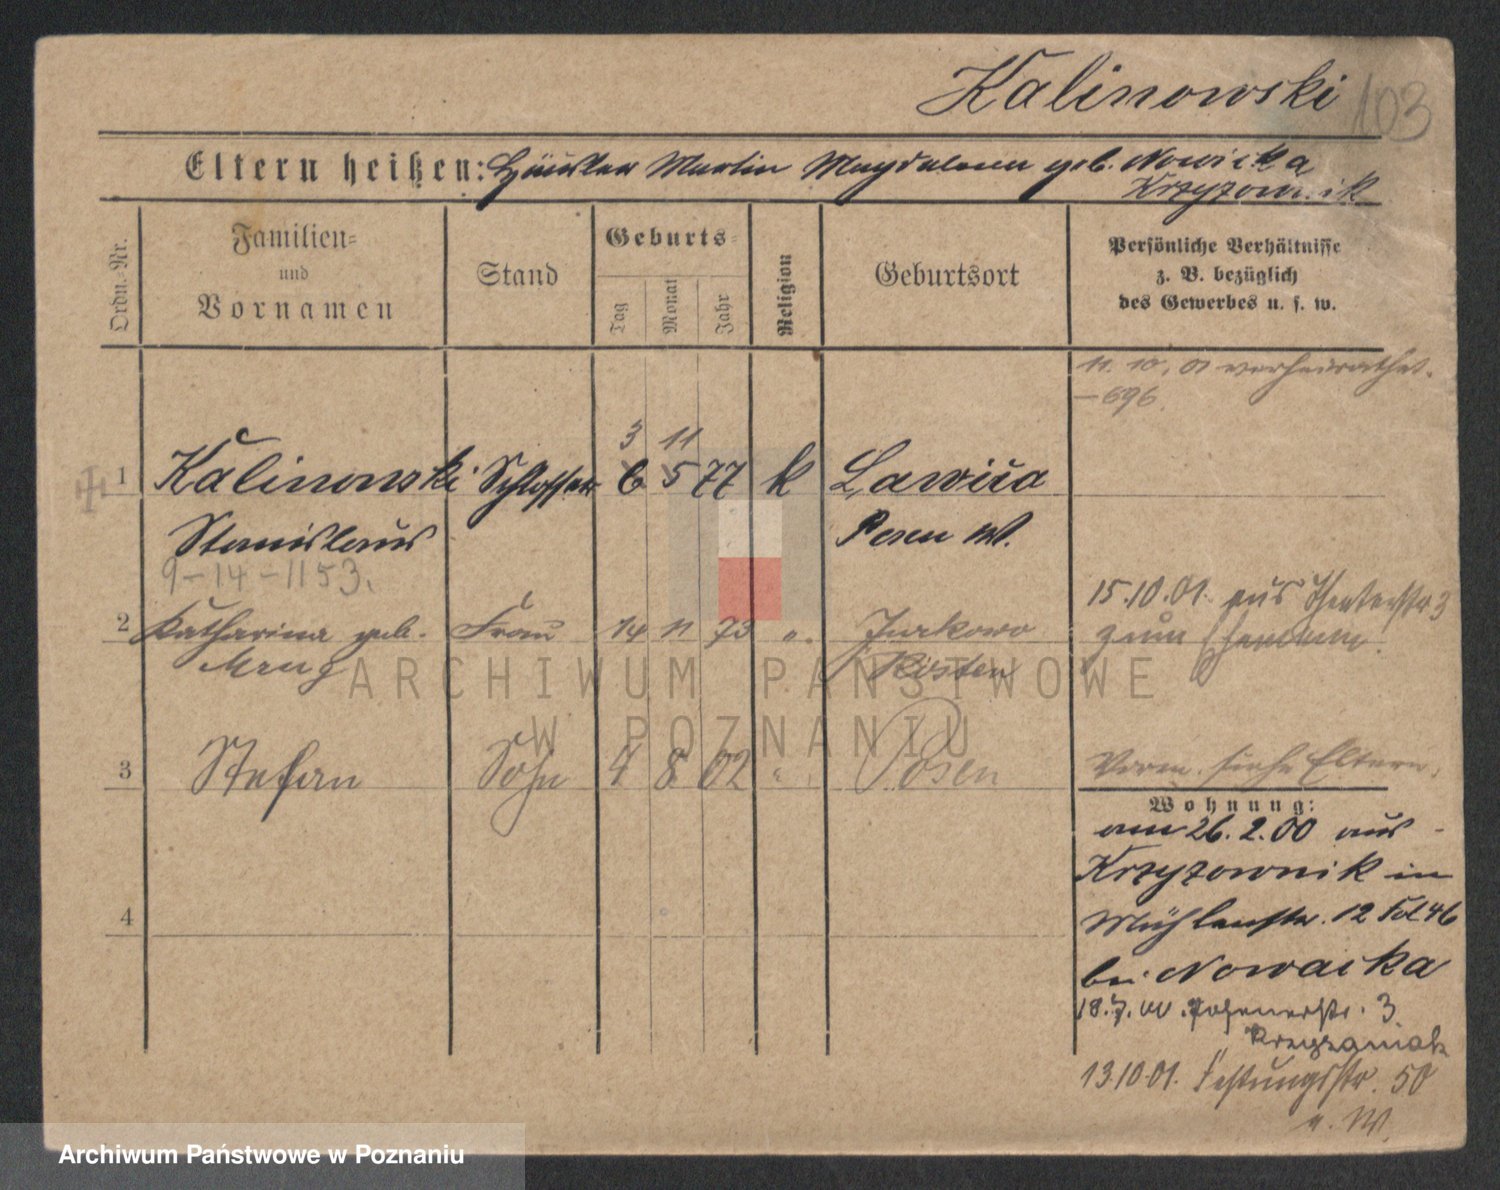 Kalinowski
103
Eltern heißen: Häusler Martin Magdalena geb. Nowicka
Krzyzownik
Ordn.-Nr.
Familien-
und
Vornamen
Stand
Geburts-
Tag
Monat
Jahr
Religion
Geburtsort
Persönliche Verhältnisse
z. B. bezüglich
des Gewerbes u. s. w.
11. 10. 01 verheirathet.
- 696.
3 11
1 Kalinowski Schlosser 6 5 77 k Lawica
Stanislaus Posen W.
9-14-1153.
15.10.01. aus Theaterstr 3
2 Katharina geb. Frau 14 11 73 ". Jurkowo
zum Ehemann.
Mrug Kosten
3 Stefan Sohn 4 8 02 " Posen
Vorm. siehe Eltern.
Wohnung:
am 26.2.00 aus
Krzyzownik in
4
Mühlenstr. 12 Fol 46
bei Nowacka
18.7.00. Posenerstr. 3
Krzyzaniak
13.10.01. Festungsstr. 50
e. W.
ARCHIWUM PAŃSTWOWE
W POZNANIU
Archiwum Państwowe w Poznaniu